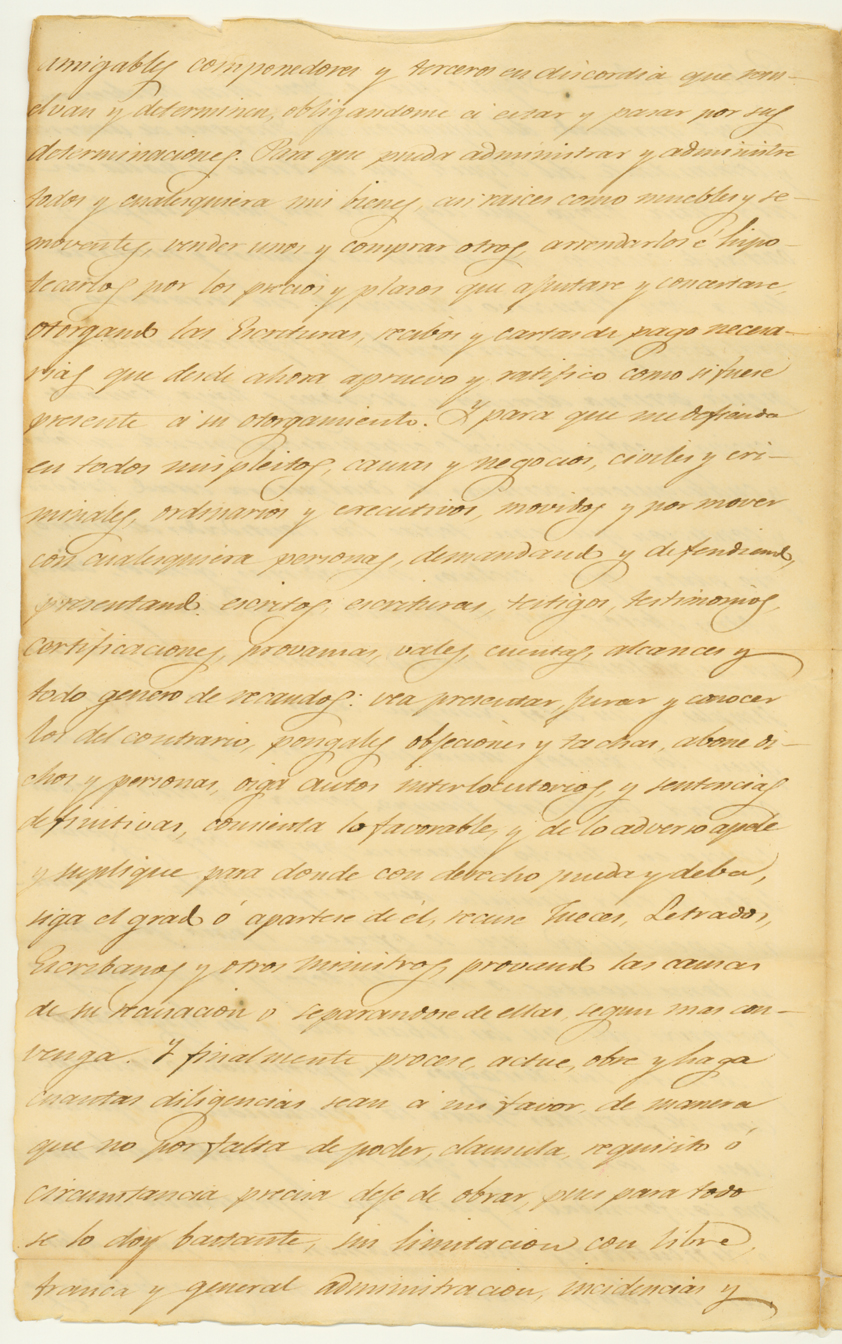 amigables componedores y terceros en discordia que resu-
elvan y determinen, obligandome á estar y pasar por sus
determinaciones. Para que pueda administrar y administre
todos y cualesquiera mis bienes, asi raices como muebles y se-
movientes, vender unos y comprar otros, arrendarlos é hipo-
tecarlos por los precios y plasos que ajustare y concertare,
otorgando las Escrituras, recibos y cartas de pago necesa-
rias que desde ahora apruevo y ratifico como si fuese
presente á su otorgamiento. Y para que me defienda
en todos mis pleitos, causas y negocios, civiles y cri-
minales, ordinarios y executivos, movidos y por mover
con cualesquiera personas, demandando y defendiendo,
presentando escritos, escrituras, testigos, testimonios,
certificaciones, provansas, vales, cuentas, alcances y
todo genero de recaudos: vea presentar, jurar y conocer
los del contrario, pongales objeciones y tachas, abone di-
chos y personas, oiga autos interlocutorios, y sentencias
definitivas, consienta lo favorable, y de lo adverso apele
y suplique para donde con derecho pueda y deba,
siga el grado ó apartese de él, recuse Jueces, Letrados,
Escribanos y otros ministros, provando las causas
de su recusacion o separandose de ellas, segun mas con-
venga. Y finalmente procese, actue, obre y haga
cuantas diligencias sean á mi favor, de manera
que no por falta de poder, clausula, requisito ó
circunstancia precisa deje de obrar, pues para todo
se lo doy bastante, sin limitacion con libre,
franca y general administracion, incidencias y